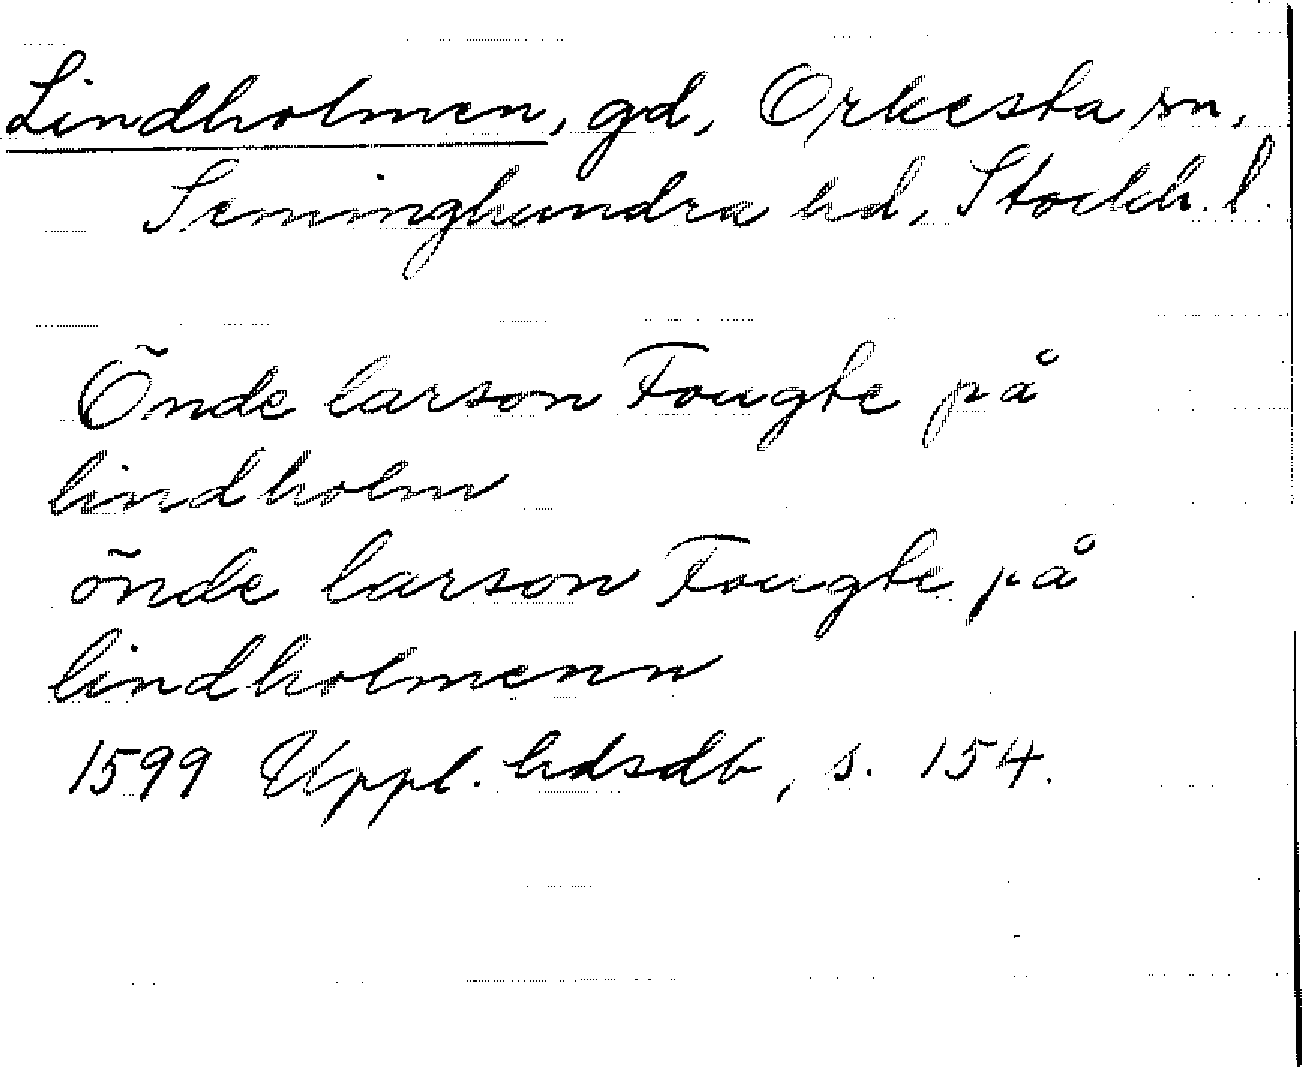 Lindholmen, gd, Orkesta sn,
Seminghundra hd, Stockh. l.
Õnde larson Fougte på
lindholm
õnde larson Fougte på
lindholmenn
1599 Uppl. hdsdb, s. 154.